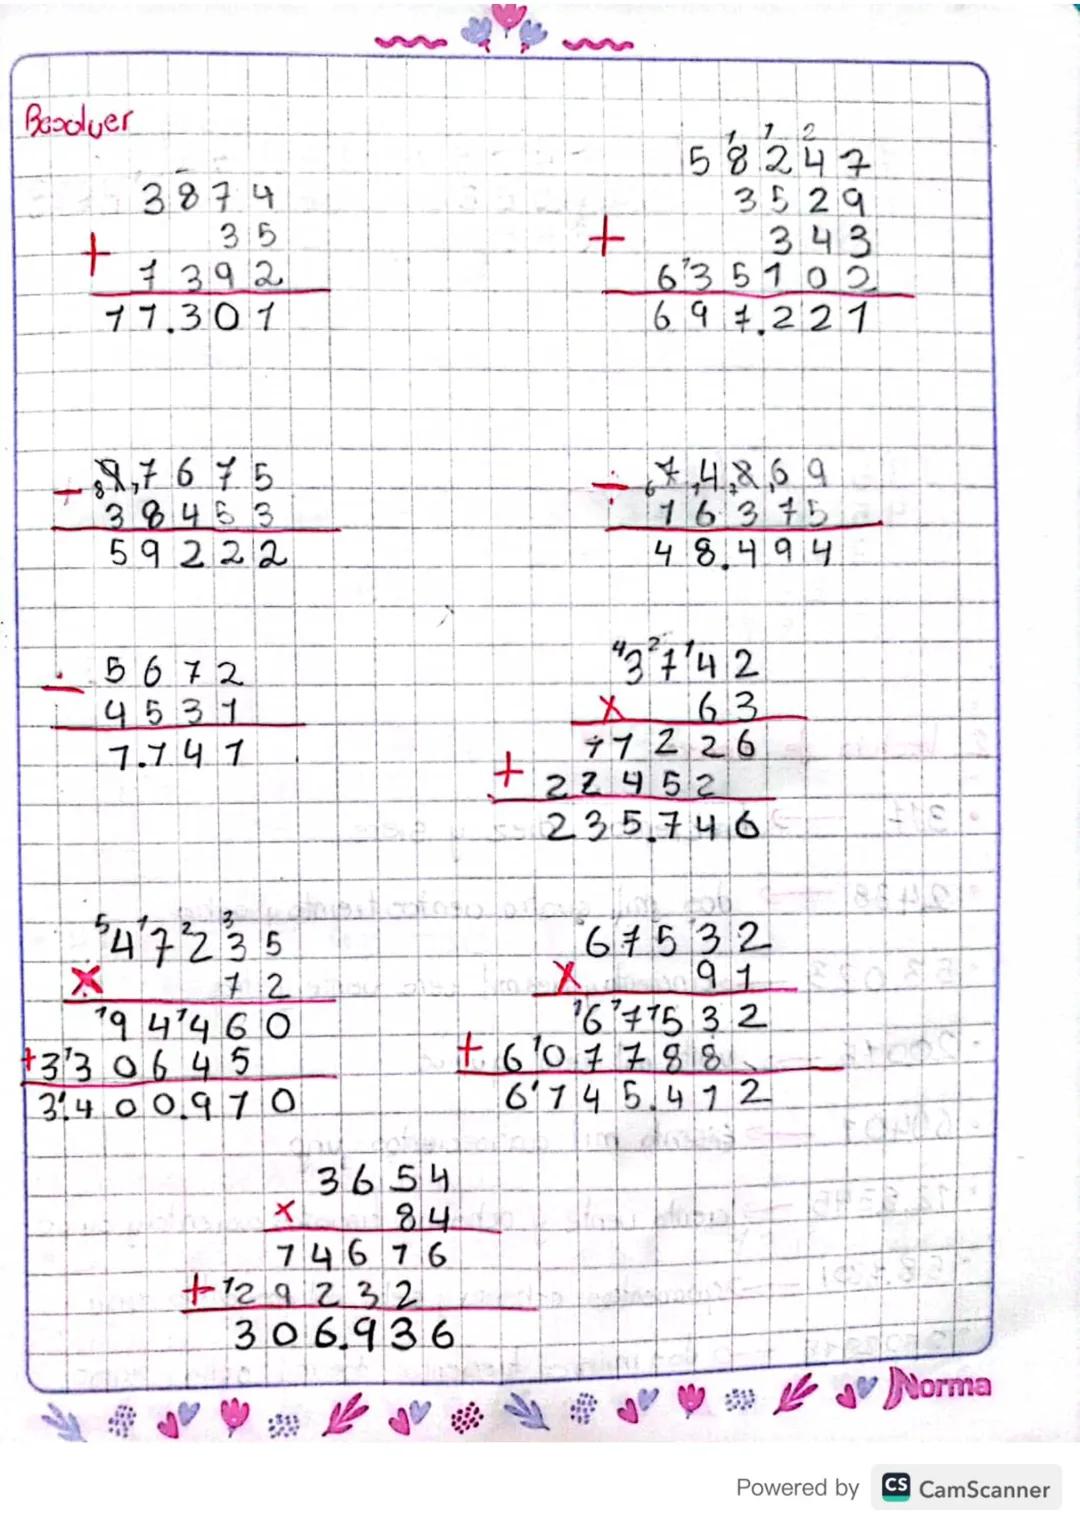 Resolver
3874
35
+ 7392
11.301
1 1 2
58247
3529
+ 343
6'35102
697.221
- 8 9,7675
38453
59222
- 6 7,4,7 8,69
16375
48.494
- 5672
4531
1.141
4 2 1
3742
x 63
11226
+ 22452
235.746
5 1 2 3
47235
x 72
'94'460
+3'30645
3'.400.970
67532
x 91
'6'7'532
+ 6'07788
6'145.412
3654
x 84
14616
+ '29232
306.936
Norma
Powered by CS CamScanner